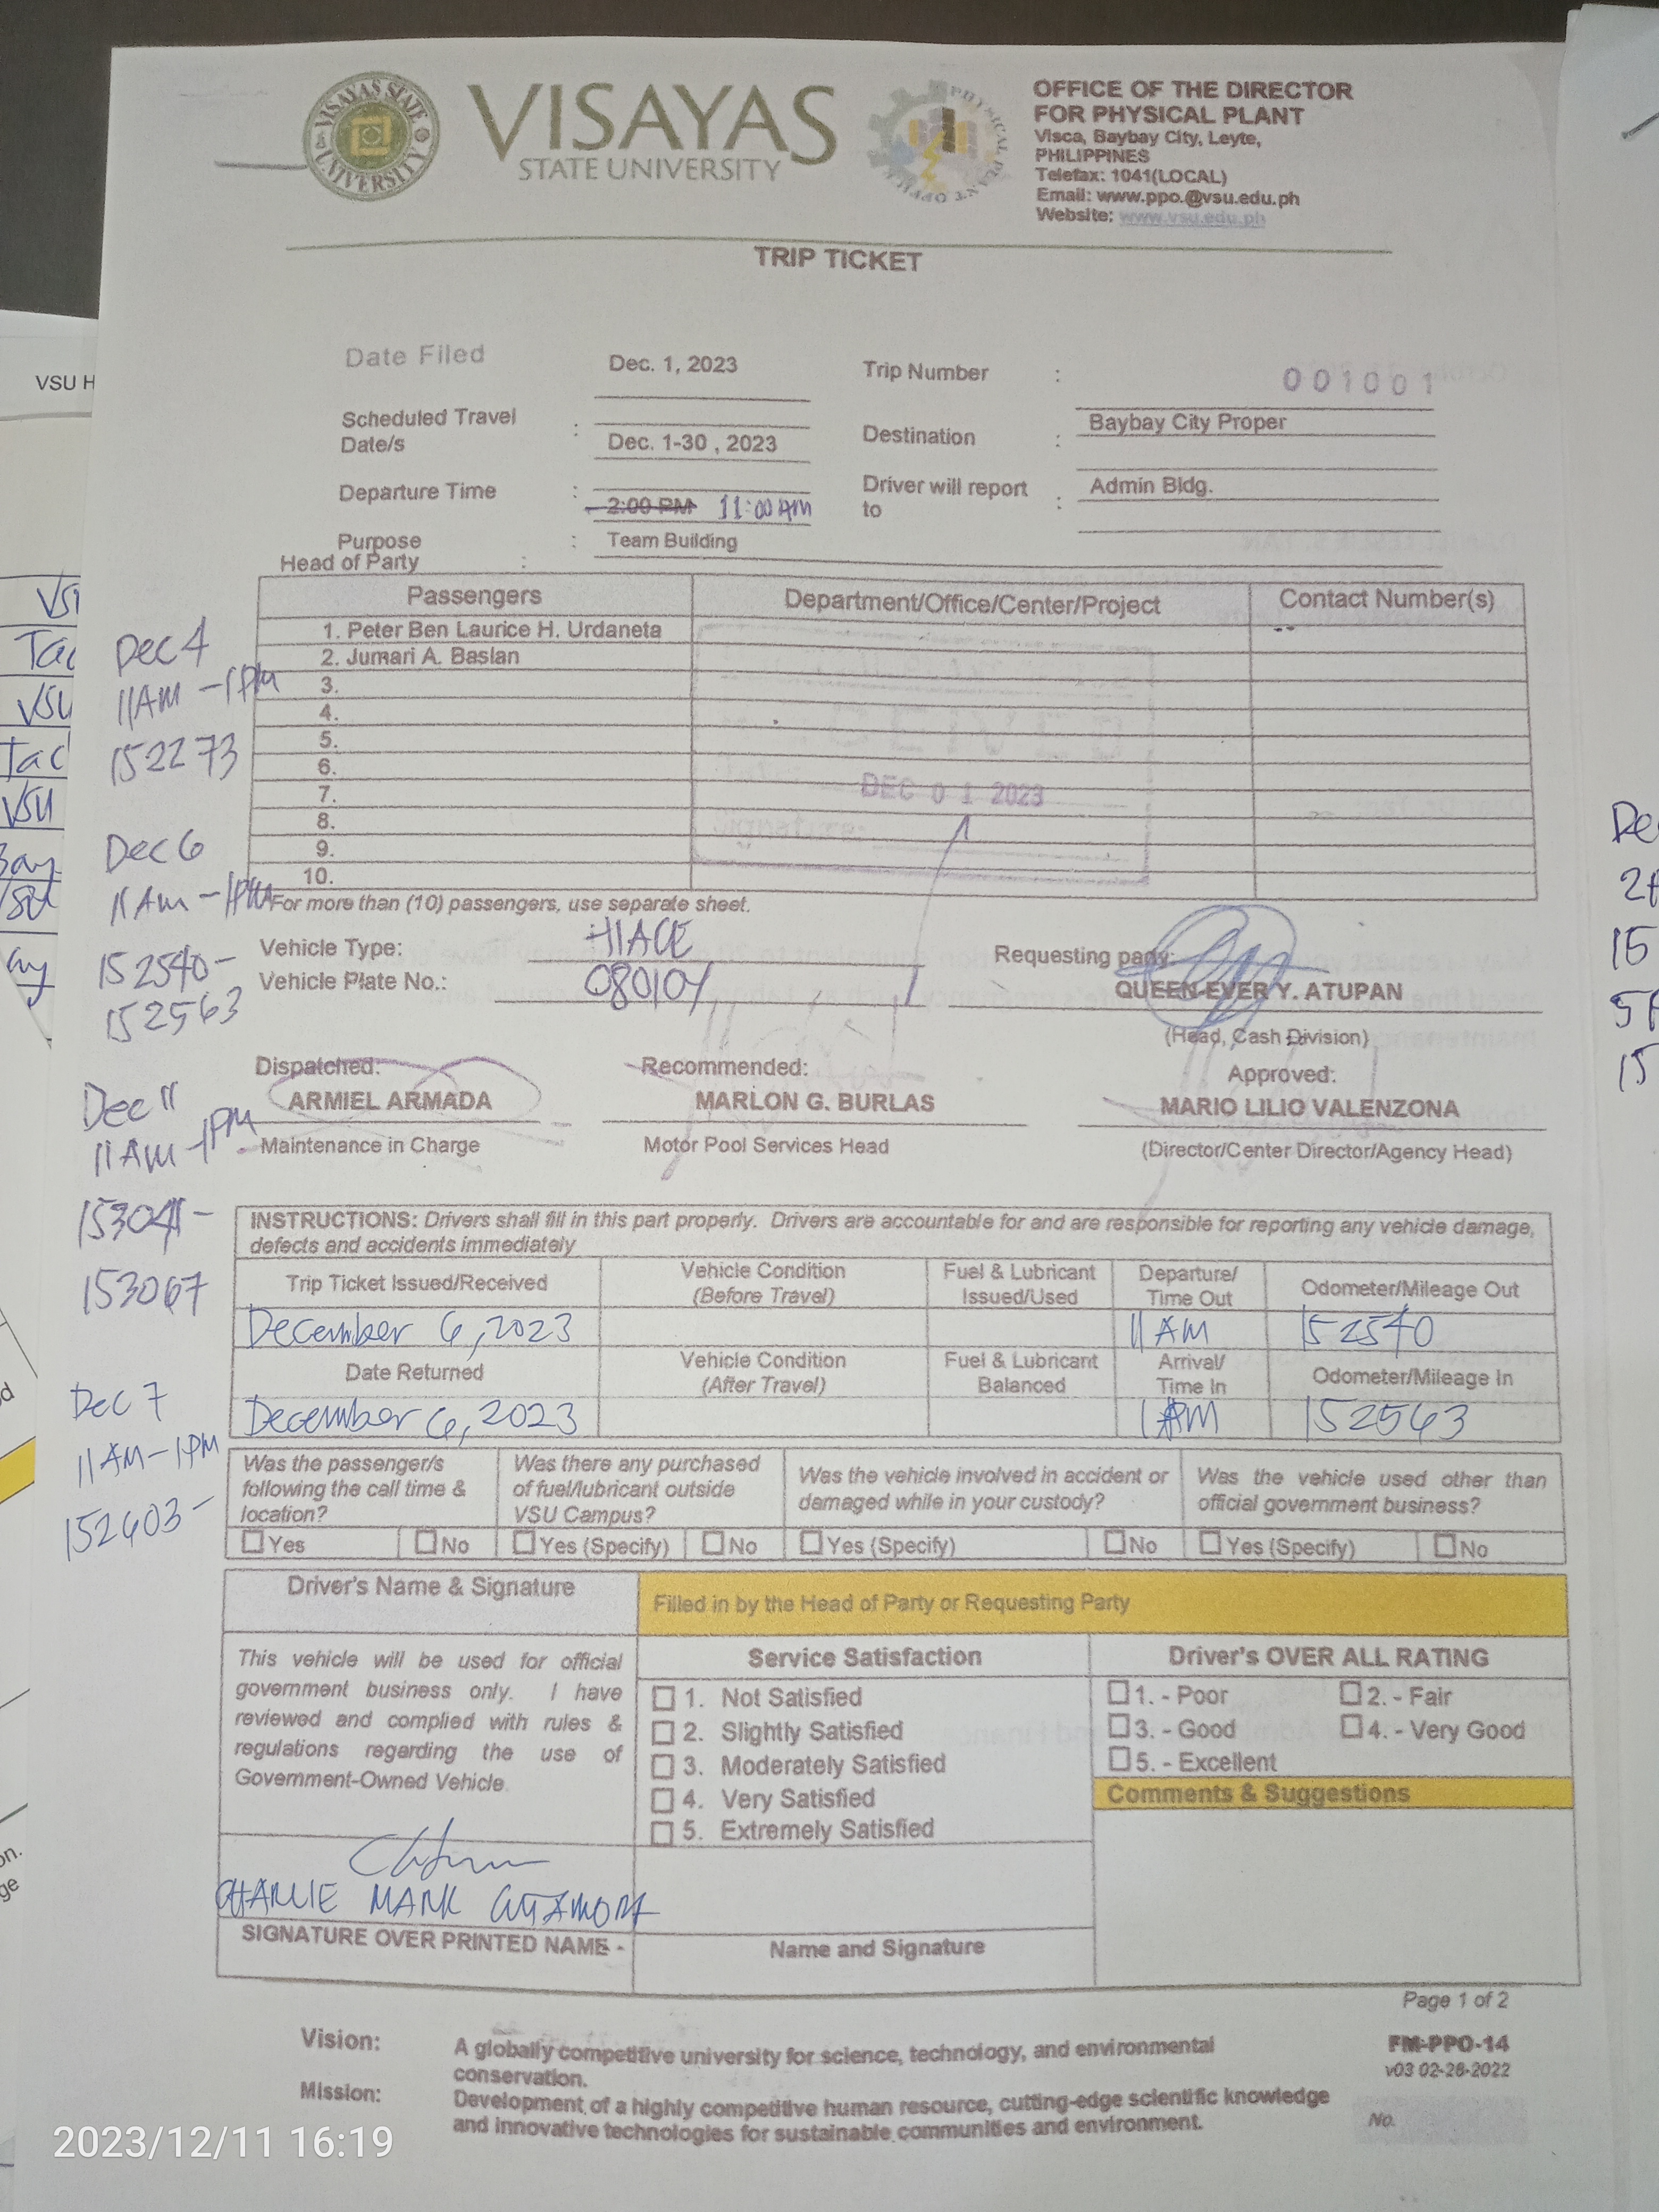 VISAYAS STATE UNIVERSITY
VISAYAS
STATE UNIVERSITY
OFFICE OF THE DIRECTOR
FOR PHYSICAL PLANT
Visca, Baybay City, Leyte,
PHILIPPINES
Telefax: 1041(LOCAL)
Email: www.ppo.@vsu.edu.ph
Website: www.vsu.edu.ph
TRIP TICKET
Date Filed Dec. 1, 2023 Trip Number : 001001
Scheduled Travel
Date/s : Dec. 1-30 , 2023 Destination : Baybay City Proper
Departure Time : 2:00 PM 11:00 AM Driver will report
to : Admin Bldg.
Purpose : Team Building
Head of Party :
Passengers Department/Office/Center/Project Contact Number(s)
1. Peter Ben Laurice H. Urdaneta --
2. Jumari A. Baslan
3.
4.
5.
6.
7.
8.
9.
10.
DEC 01 2023
For more than (10) passengers, use separate sheet.
Vehicle Type: HIACE
Vehicle Plate No.: 080104
Requesting party:
QUEEN-EVER Y. ATUPAN
(Head, Cash Division)
Dispatched: Recommended: Approved:
ARMIEL ARMADA MARLON G. BURLAS MARIO LILIO VALENZONA
Maintenance in Charge Motor Pool Services Head (Director/Center Director/Agency Head)
INSTRUCTIONS: Drivers shall fill in this part properly. Drivers are accountable for and are responsible for reporting any vehicle damage,
defects and accidents immediately
Trip Ticket Issued/Received Vehicle Condition
(Before Travel) Fuel & Lubricant
Issued/Used Departure/
Time Out Odometer/Mileage Out
December 6, 2023 11 AM 152540
Date Returned Vehicle Condition
(After Travel) Fuel & Lubricant
Balanced Arrival/
Time In Odometer/Mileage In
December 6, 2023 1 PM 152563
Was the passenger/s
following the call time &
location?
Yes No
Was there any purchased
of fuel/lubricant outside
VSU Campus?
Yes (Specify) No
Was the vehicle involved in accident or
damaged while in your custody?
Yes (Specify) No
Was the vehicle used other than
official government business?
Yes (Specify) No
Driver's Name & Signature
Filled in by the Head of Party or Requesting Party
This vehicle will be used for official
government business only. I have
reviewed and complied with rules &
regulations regarding the use of
Government-Owned Vehicle.
CHARLIE MARK
SIGNATURE OVER PRINTED NAME -
Service Satisfaction
1. Not Satisfied
2. Slightly Satisfied
3. Moderately Satisfied
4. Very Satisfied
5. Extremely Satisfied
Name and Signature
Driver's OVER ALL RATING
1. - Poor 2. - Fair
3. - Good 4. - Very Good
5. - Excellent
Comments & Suggestions
Page 1 of 2
Vision: A globally competitive university for science, technology, and environmental
conservation.
Mission: Development of a highly competitive human resource, cutting-edge scientific knowledge
and innovative technologies for sustainable communities and environment.
FM-PPO-14
v03 02-28-2022
No.
Dec 4
11AM - 1PM
152273
Dec 6
11AM - 1PM
152540 -
152563
Dec 11
11AM - 1PM
153041 -
153067
Dec 7
11AM - 1PM
152603 -
VSU H
VSU
Tac
VSU
Tac
VSU
2023/12/11 16:19